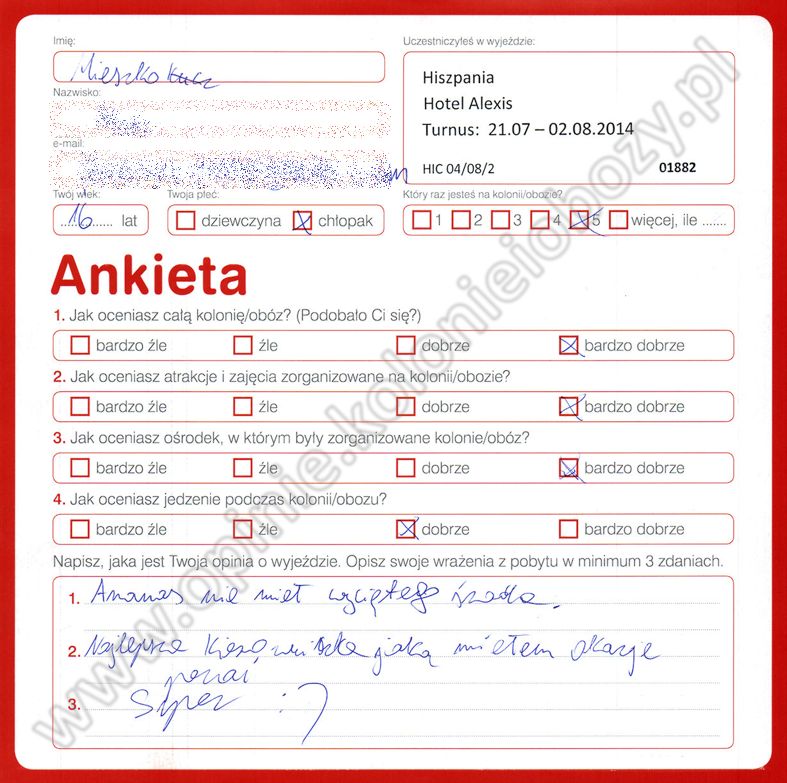 Imię:
Uczestniczyłeś w wyjeździe:
Mieszko
Hiszpania
Hotel Alexis
Turnus: 21.07 – 02.08.2014
HIC 04/08/2 01882
Nazwisko:
e-mail:
Twój wiek:
Twoja płeć:
Który raz jesteś na kolonii/obozie?
16 lat
dziewczyna chłopak
1 2 3 4 5 więcej, ile .......
Ankieta
1. Jak oceniasz całą kolonię/obóz? (Podobało Ci się?)
bardzo źle źle dobrze bardzo dobrze
2. Jak oceniasz atrakcje i zajęcia zorganizowane na kolonii/obozie?
bardzo źle źle dobrze bardzo dobrze
3. Jak oceniasz ośrodek, w którym były zorganizowane kolonie/obóz?
bardzo źle źle dobrze bardzo dobrze
4. Jak oceniasz jedzenie podczas kolonii/obozu?
bardzo źle źle dobrze bardzo dobrze
Napisz, jaka jest Twoja opinia o wyjeździe. Opisz swoje wrażenia z pobytu w minimum 3 zdaniach.
1. Ananas nie miał wyciętego środka.
2. Najlepsza jaką miałem okazje
3. Super :)
www.opinie.kolonieiobozy.pl